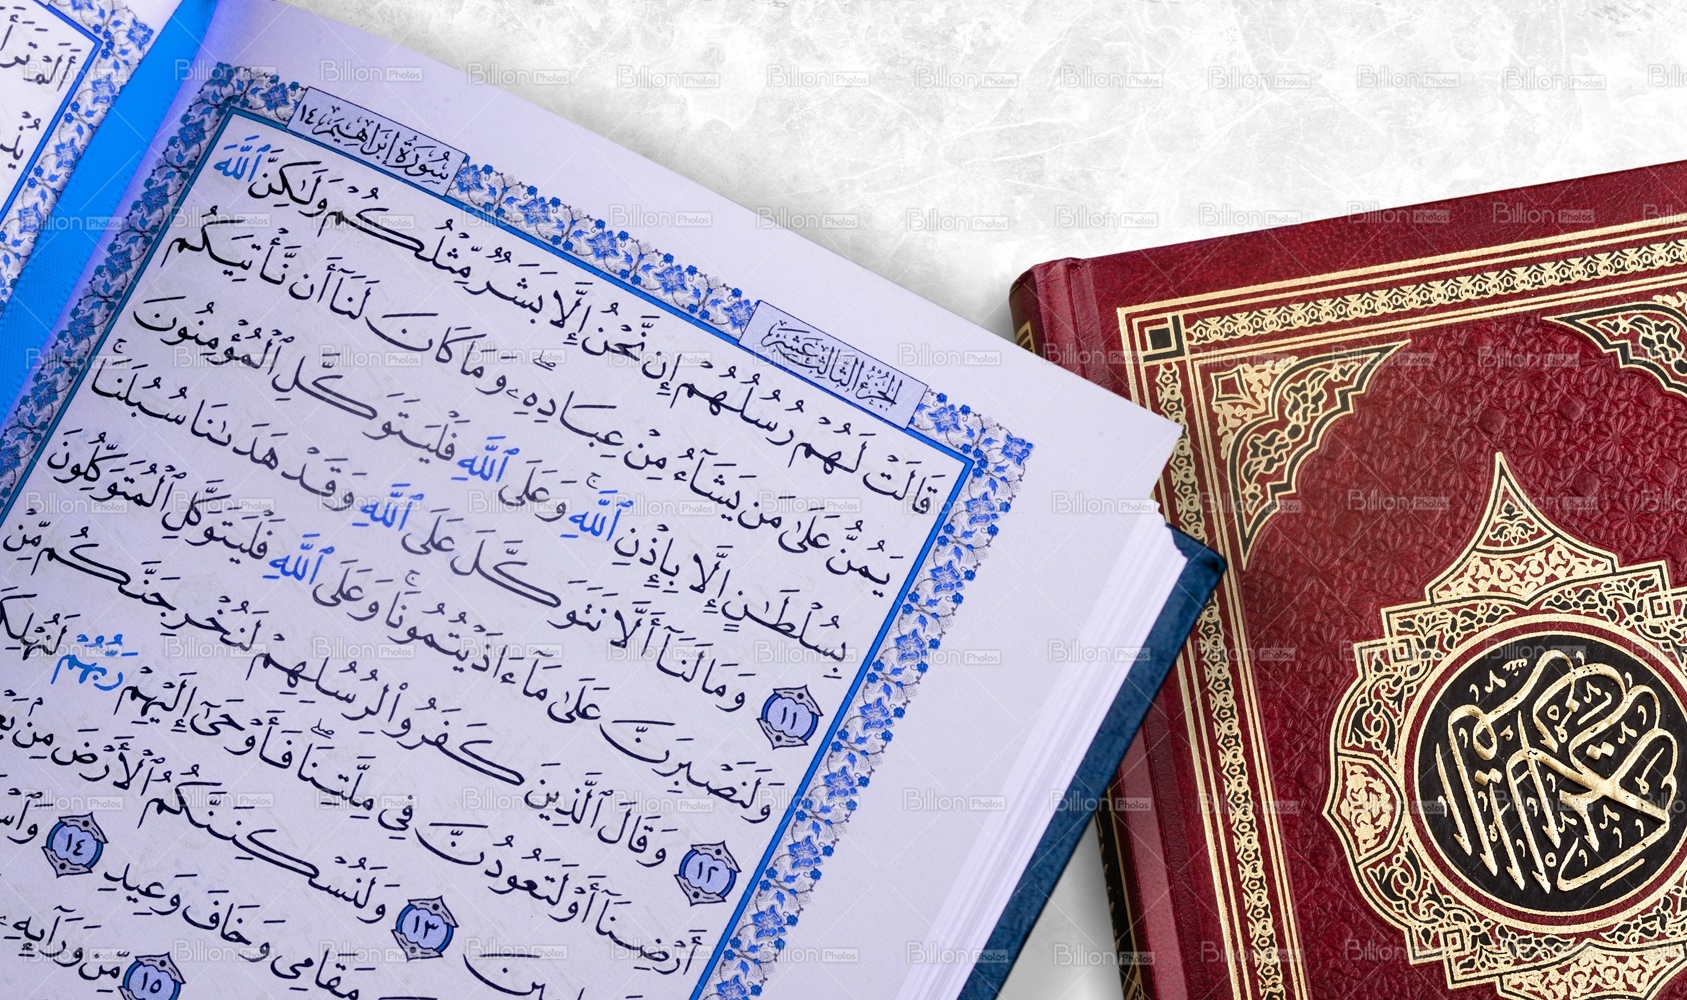 سُورَةُ إِبْرَاهِيمَ ١٤
الجُزْءُ الثَّالِثَ عَشَرَ
قَالَتْ لَهُمْ رُسُلُهُمْ إِن نَّحْنُ إِلَّا بَشَرٌ مِّثْلُكُمْ وَلَٰكِنَّ ٱللَّهَ
يَمُنُّ عَلَىٰ مَن يَشَآءُ مِنْ عِبَادِهِۦۖ وَمَا كَانَ لَنَآ أَن نَّأْتِيَكُم
بِسُلْطَٰنٍ إِلَّا بِإِذْنِ ٱللَّهِۚ وَعَلَى ٱللَّهِ فَلْيَتَوَكَّلِ ٱلْمُؤْمِنُونَ
١١ وَمَا لَنَآ أَلَّا نَتَوَكَّلَ عَلَى ٱللَّهِ وَقَدْ هَدَىٰنَا سُبُلَنَاۚ
وَلَنَصْبِرَنَّ عَلَىٰ مَآ ءَاذَيْتُمُونَاۚ وَعَلَى ٱللَّهِ فَلْيَتَوَكَّلِ ٱلْمُتَوَكِّلُونَ
١٢ وَقَالَ ٱلَّذِينَ كَفَرُوا۟ لِرُسُلِهِمْ لَنُخْرِجَنَّكُم مِّنْ
أَرْضِنَآ أَوْ لَتَعُودُنَّ فِى مِلَّتِنَاۖ فَأَوْحَىٰٓ إِلَيْهِمْ رَبُّهُمْ
١٣ وَلَنُسْكِنَنَّكُمُ ٱلْأَرْضَ مِنۢ
مَقَامِى وَخَافَ وَعِيدِ ١٤
١٥ مِّن وَرَآئِهِۦ
أَلَمْ تَرَ
Billion Photos